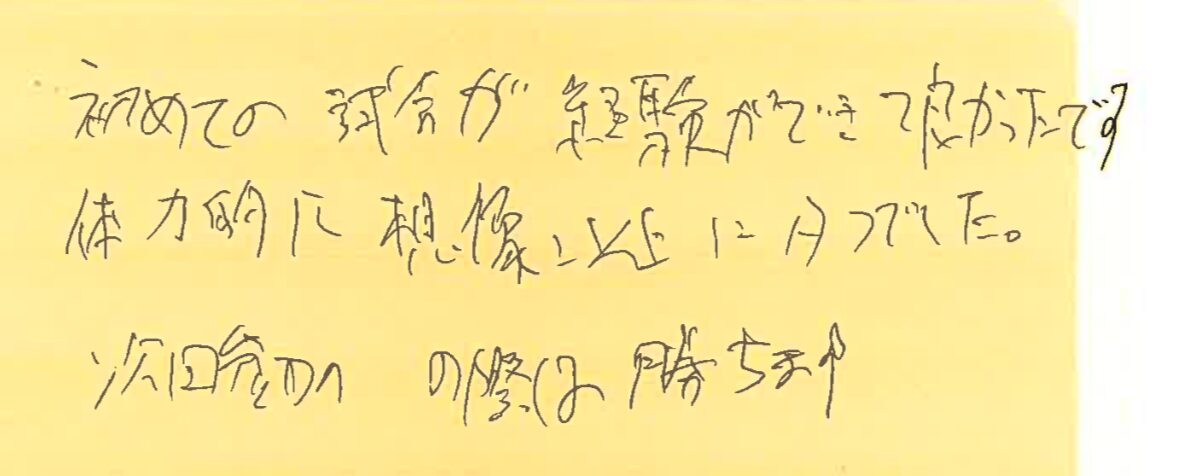 初めての 試合が 経験ができて良かったです
体力的に 想像以上に でした。
次回参加 の際は 勝ちます